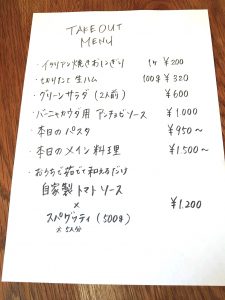 TAKEOUT
MENU
・イタリアン焼きおにぎり 1ケ ¥200
・切りたて生ハム 100g ¥820
・グリーンサラダ(2人前) ¥600
・バーニャカウダ用 アンチョビソース ¥1.000
・本日のパスタ ¥950〜
・本日のメイン料理 ¥1.500〜
・おうちで茹でて和えるだけ
自家製トマトソース
×
スパゲッティ(500g)
※5人分
¥1.200